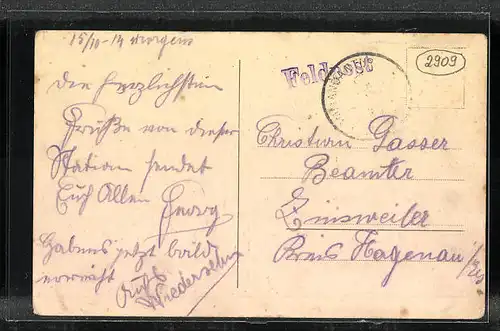 15/10-14 Morgens
Die herzlichsten
Grüße von dieser
Station sendet
Euch Allen Georg
Habens jetzt bald
erreicht
Auf
Wiedersehn
Feldpost
2909
Christian Gasser
Beamter
Zinsweiler
Kreis Hagenau/Els